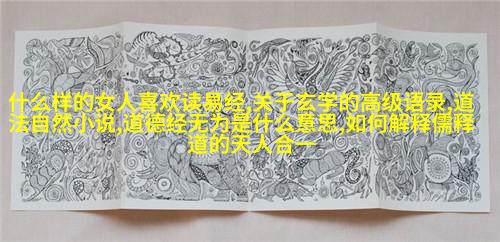 什么样的女人喜欢读易经,关于玄学的高级语录,道
法自然小说,道德经无为是什么意思,如何解释儒释
道的天人合一